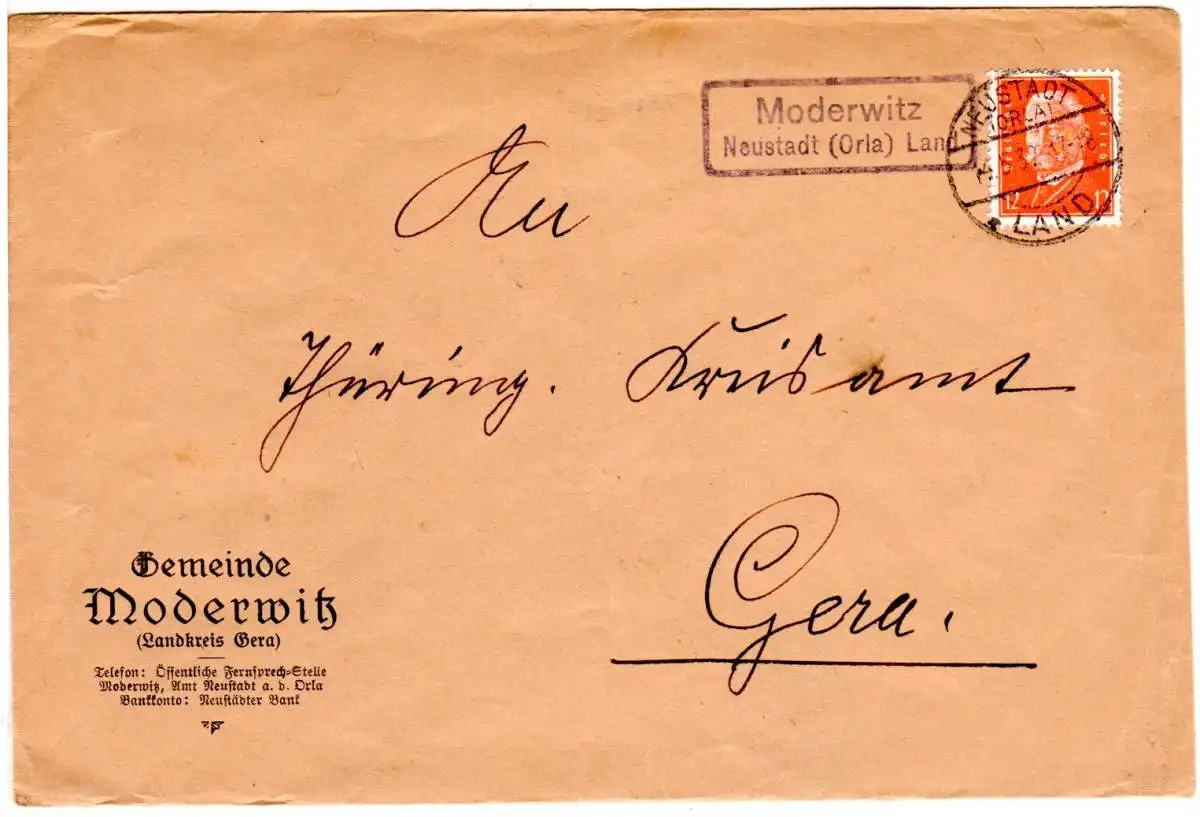 Moderwitz
Neustadt (Orla) Land
NEUSTADT
(ORLA)
LAND
12 12
An
Thüring. Kreisamt
Gera.
Gemeinde
Moderwitz
(Landkreis Gera)
Telefon: Öffentliche Fernsprech-Stelle
Moderwitz, Amt Neustadt a. d. Orla
Bankkonto: Neustädter Bank